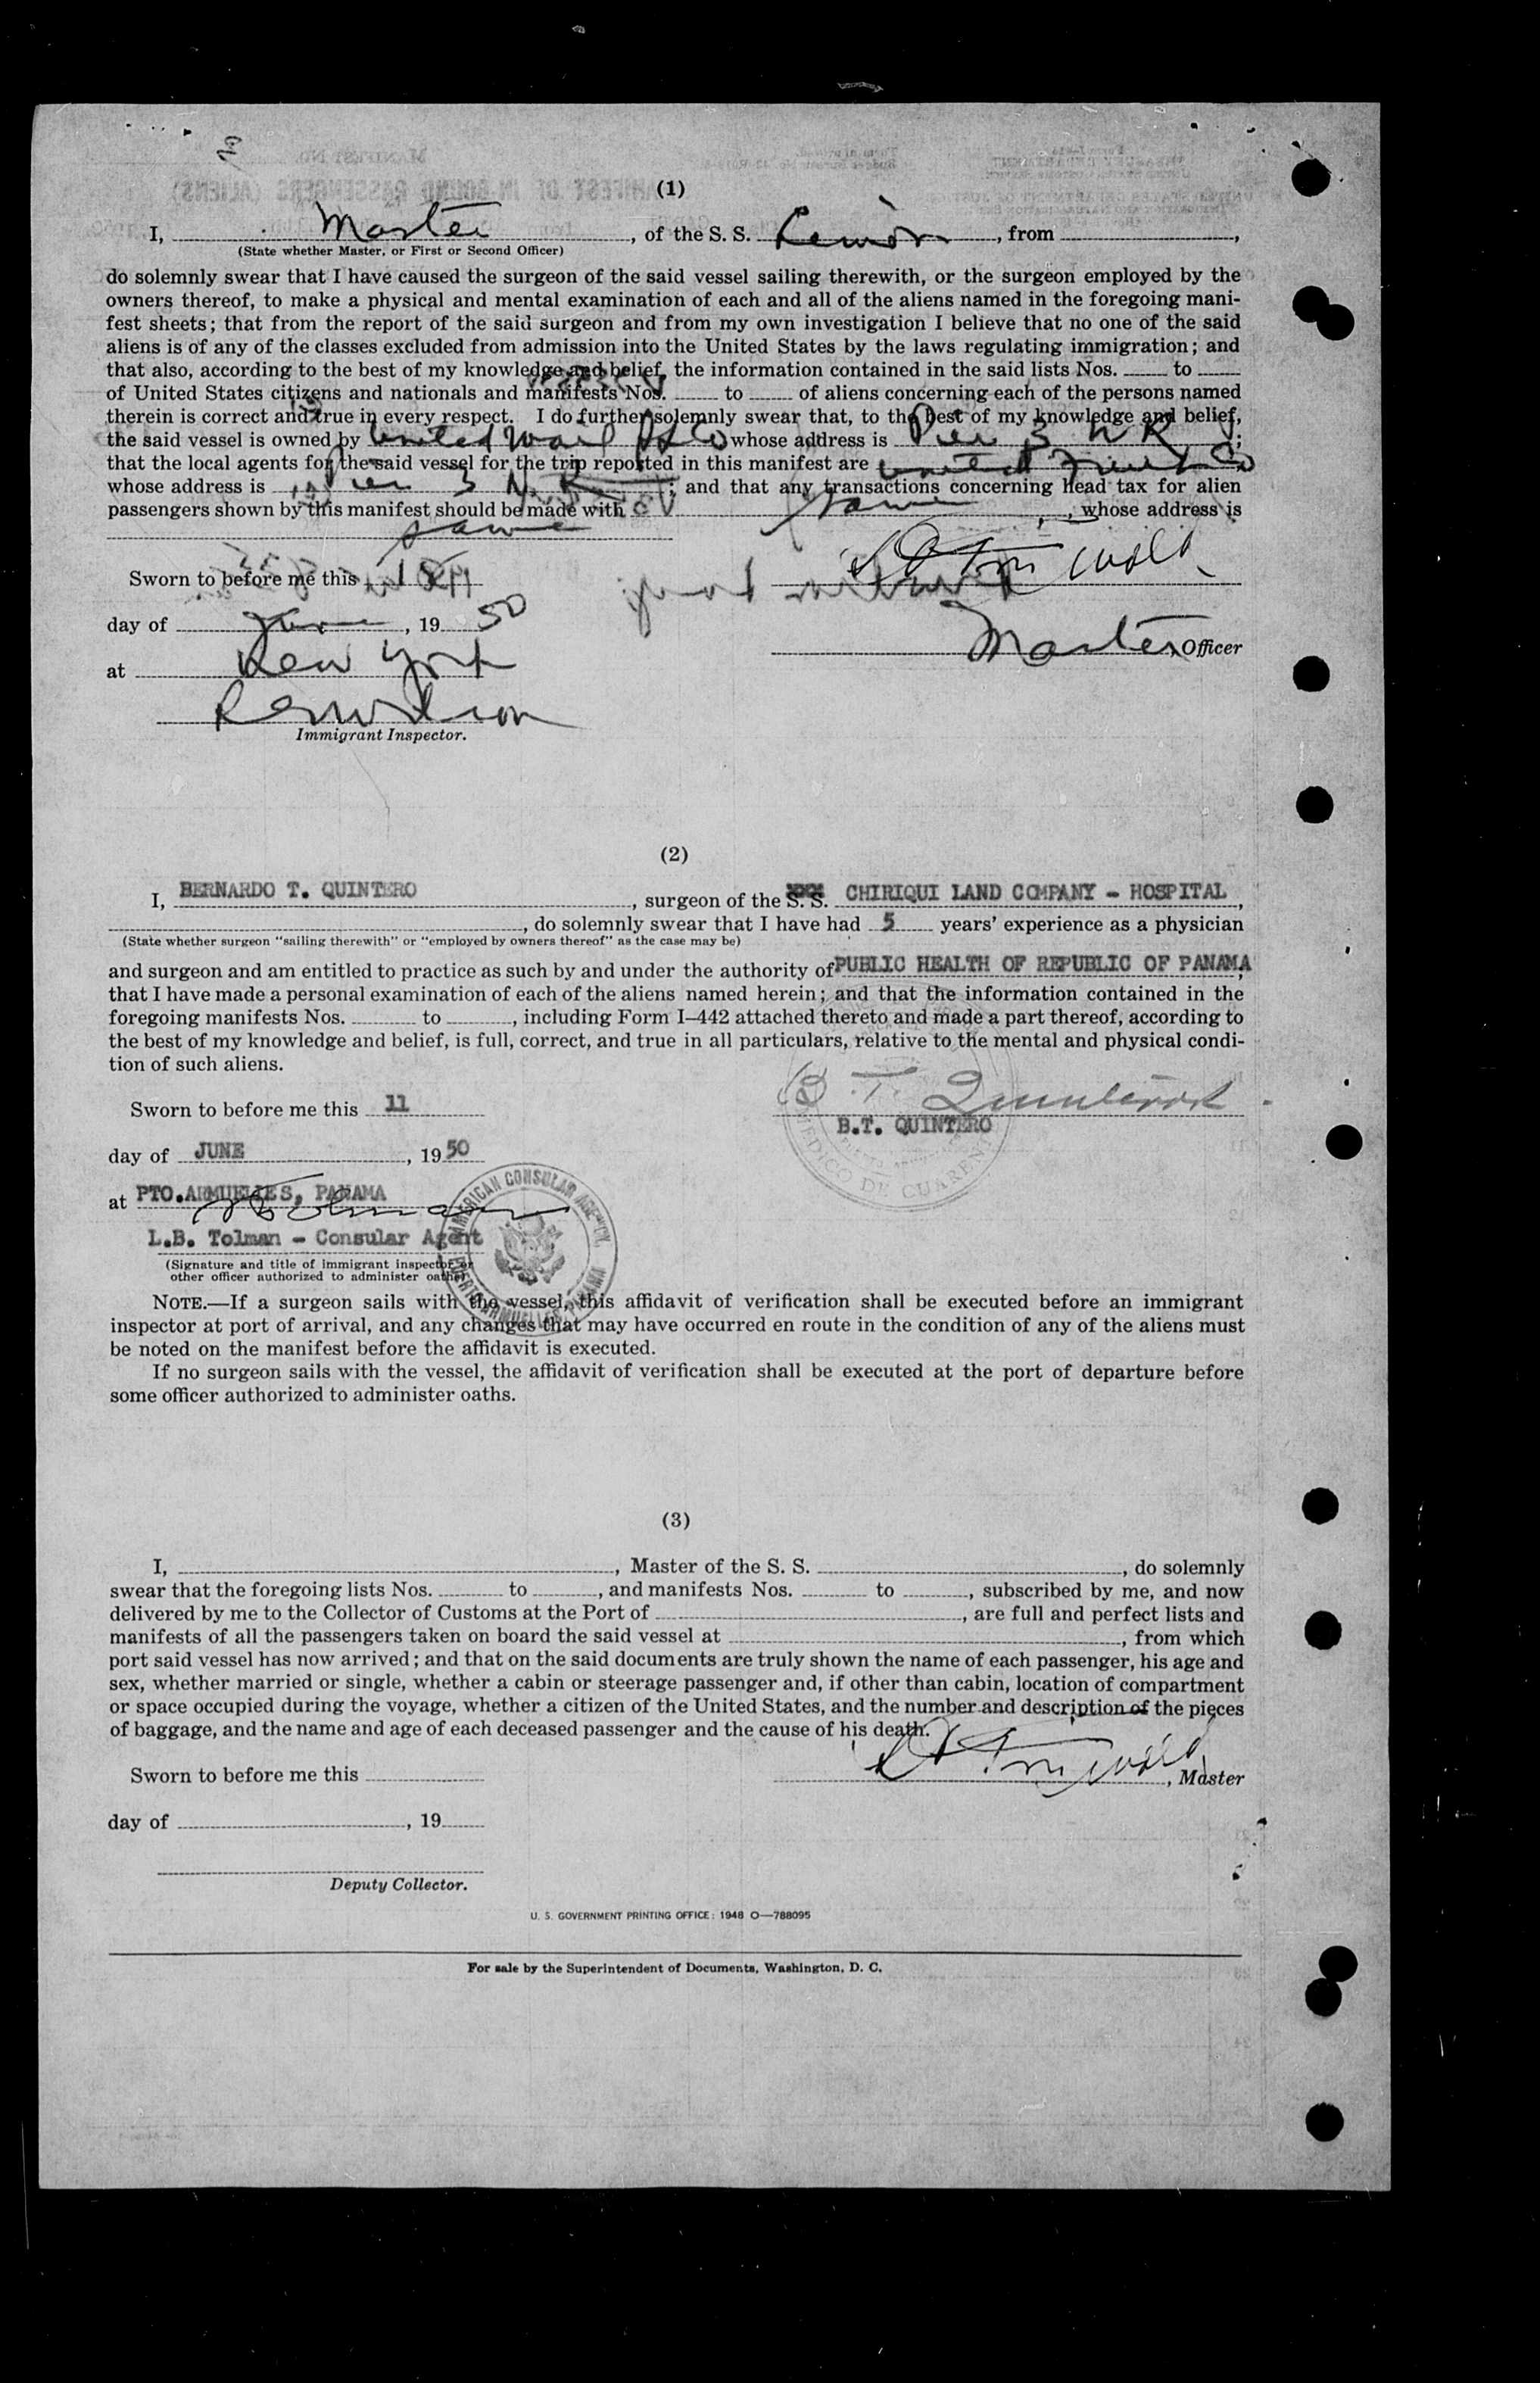 (1)
I, Master, of the S. S. Limon, from
(State whether Master, or First or Second Officer)
do solemnly swear that I have caused the surgeon of the said vessel sailing therewith, or the surgeon employed by the
owners thereof, to make a physical and mental examination of each and all of the aliens named in the foregoing mani-
fest sheets; that from the report of the said surgeon and from my own investigation I believe that no one of the said
aliens is of any of the classes excluded from admission into the United States by the laws regulating immigration; and
that also, according to the best of my knowledge and belief, the information contained in the said lists Nos. to
of United States citizens and nationals and manifests Nos. to of aliens concerning each of the persons named
therein is correct and true in every respect. I do further solemnly swear that, to the best of my knowledge and belief,
the said vessel is owned by United Mail SS Co whose address is Pier 3 N R;
that the local agents for the said vessel for the trip reported in this manifest are United Fruit Co
whose address is Pier 3 N. R; and that any transactions concerning head tax for alien
passengers shown by this manifest should be made with same, whose address is
same
Sworn to before me this 18
day of June, 1950
Master, Officer
at New York
Immigrant Inspector.
(2)
I, BERNARDO T. QUINTERO, surgeon of the S. S. CHIRIQUI LAND COMPANY - HOSPITAL,
, do solemnly swear that I have had 5 years' experience as a physician
(State whether surgeon "sailing therewith" or "employed by owners thereof" as the case may be)
and surgeon and am entitled to practice as such by and under the authority of PUBLIC HEALTH OF REPUBLIC OF PANAMA;
that I have made a personal examination of each of the aliens named herein; and that the information contained in the
foregoing manifests Nos. to, including Form I-442 attached thereto and made a part thereof, according to
the best of my knowledge and belief, is full, correct, and true in all particulars, relative to the mental and physical condi-
tion of such aliens.
B. T. Quintero
Sworn to before me this 11
B.T. QUINTERO
MEDICO DE CUARENT
day of JUNE, 1950
at PTO.ARMUELLES, PANAMA
AMERICAN CONSULAR AGENCY, PUERTO ARMUELLES, PANAMA
L.B. Tolman - Consular Agent
(Signature and title of immigrant inspector or
other officer authorized to administer oaths)
NOTE.—If a surgeon sails with the vessel, this affidavit of verification shall be executed before an immigrant
inspector at port of arrival, and any changes that may have occurred en route in the condition of any of the aliens must
be noted on the manifest before the affidavit is executed.
If no surgeon sails with the vessel, the affidavit of verification shall be executed at the port of departure before
some officer authorized to administer oaths.
(3)
I, , Master of the S. S. , do solemnly
swear that the foregoing lists Nos. to , and manifests Nos. to , subscribed by me, and now
delivered by me to the Collector of Customs at the Port of , are full and perfect lists and
manifests of all the passengers taken on board the said vessel at , from which
port said vessel has now arrived; and that on the said documents are truly shown the name of each passenger, his age and
sex, whether married or single, whether a cabin or steerage passenger and, if other than cabin, location of compartment
or space occupied during the voyage, whether a citizen of the United States, and the number and description of the pieces
of baggage, and the name and age of each deceased passenger and the cause of his death.
Sworn to before me this
, Master
day of , 19
Deputy Collector.
U. S. GOVERNMENT PRINTING OFFICE: 1948 O—788095
For sale by the Superintendent of Documents, Washington, D. C.